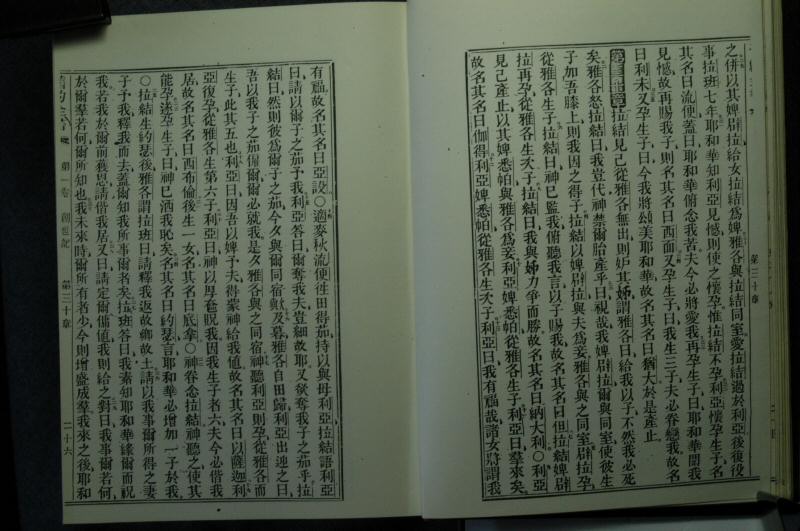 之併以其婢辟拉給女拉結爲婢雅各與拉結同室愛拉結過於利亞後復役
事拉班七年耶和華知利亞見憾則使之懷孕惟拉結不孕利亞懷孕生子名
其名曰流便蓋曰耶和華俯念我苦今夫必將愛我再孕生子曰耶和華聞我
見憾故再賜我子則名其名曰西面又孕生子曰我生三子夫必眷戀我故名
曰利未又孕生子曰今我將頌美耶和華故名其名曰猶大於是產止
第三十章拉結見己從雅各無出則妒其姊謂雅各曰給我以子不然我必死
矣雅各怒拉結曰我豈代神禁爾胎產乎曰視哉我婢辟拉爾與同室使彼生
子加吾膝上則我因之得子拉結以婢辟拉與夫爲妾雅各與之同室辟拉孕
從雅各生子拉結曰神已監我俯聽我言以子賜我故名其名曰但拉結婢辟
拉再孕從雅各生次子拉結曰我與姊力爭而勝故名其名曰納大利〇利亞
見己產止以其婢悉帕與雅各爲妾利亞婢悉帕從雅各生子利亞曰羣來矣
故名其名曰伽得利亞婢悉帕從雅各生次子利亞曰我有福哉諸女將謂我
第三十章
有福故名其名曰亞設〇適麥秋流便往田得茄持以與母利亞拉結語利亞
曰請以爾子之茄予我利亞答曰爾奪我夫豈細故耶又欲奪我子之茄乎拉
結曰然則彼爲爾子之茄今夕與爾同宿歟及暮雅各自田歸利亞出迎之曰
吾以我子之茄僱爾爾必就我是夕雅各與之同宿神聽利亞則孕從雅各而
生子此其五也利亞曰因吾以婢予夫得蒙神給我値故名其名曰以薩迦利
亞復孕從雅各生第六子利亞曰神以厚奩貺我因我生子者六夫今必偕我
居故名其名曰西布倫後生一女名其名曰底拿〇神眷念拉結神聽之使其
能孕遂孕生子曰神已洒我恥矣名其名曰約瑟言耶和華必增加一子於我
〇拉結生約瑟後雅各謂拉班曰請釋我返故鄉故土請以我事爾所得之妻
子予我釋我而去蓋爾知我所事爾者矣拉班答曰我素知耶和華緣爾而祝
我若我於爾前獲恩請偕我居又曰請定爾傭値我則給之對曰我事爾若何
於爾羣若何爾所知也我未來時爾所有者少今則增盛成羣我來之後耶和
第一卷 創世記 第三十章 二十六